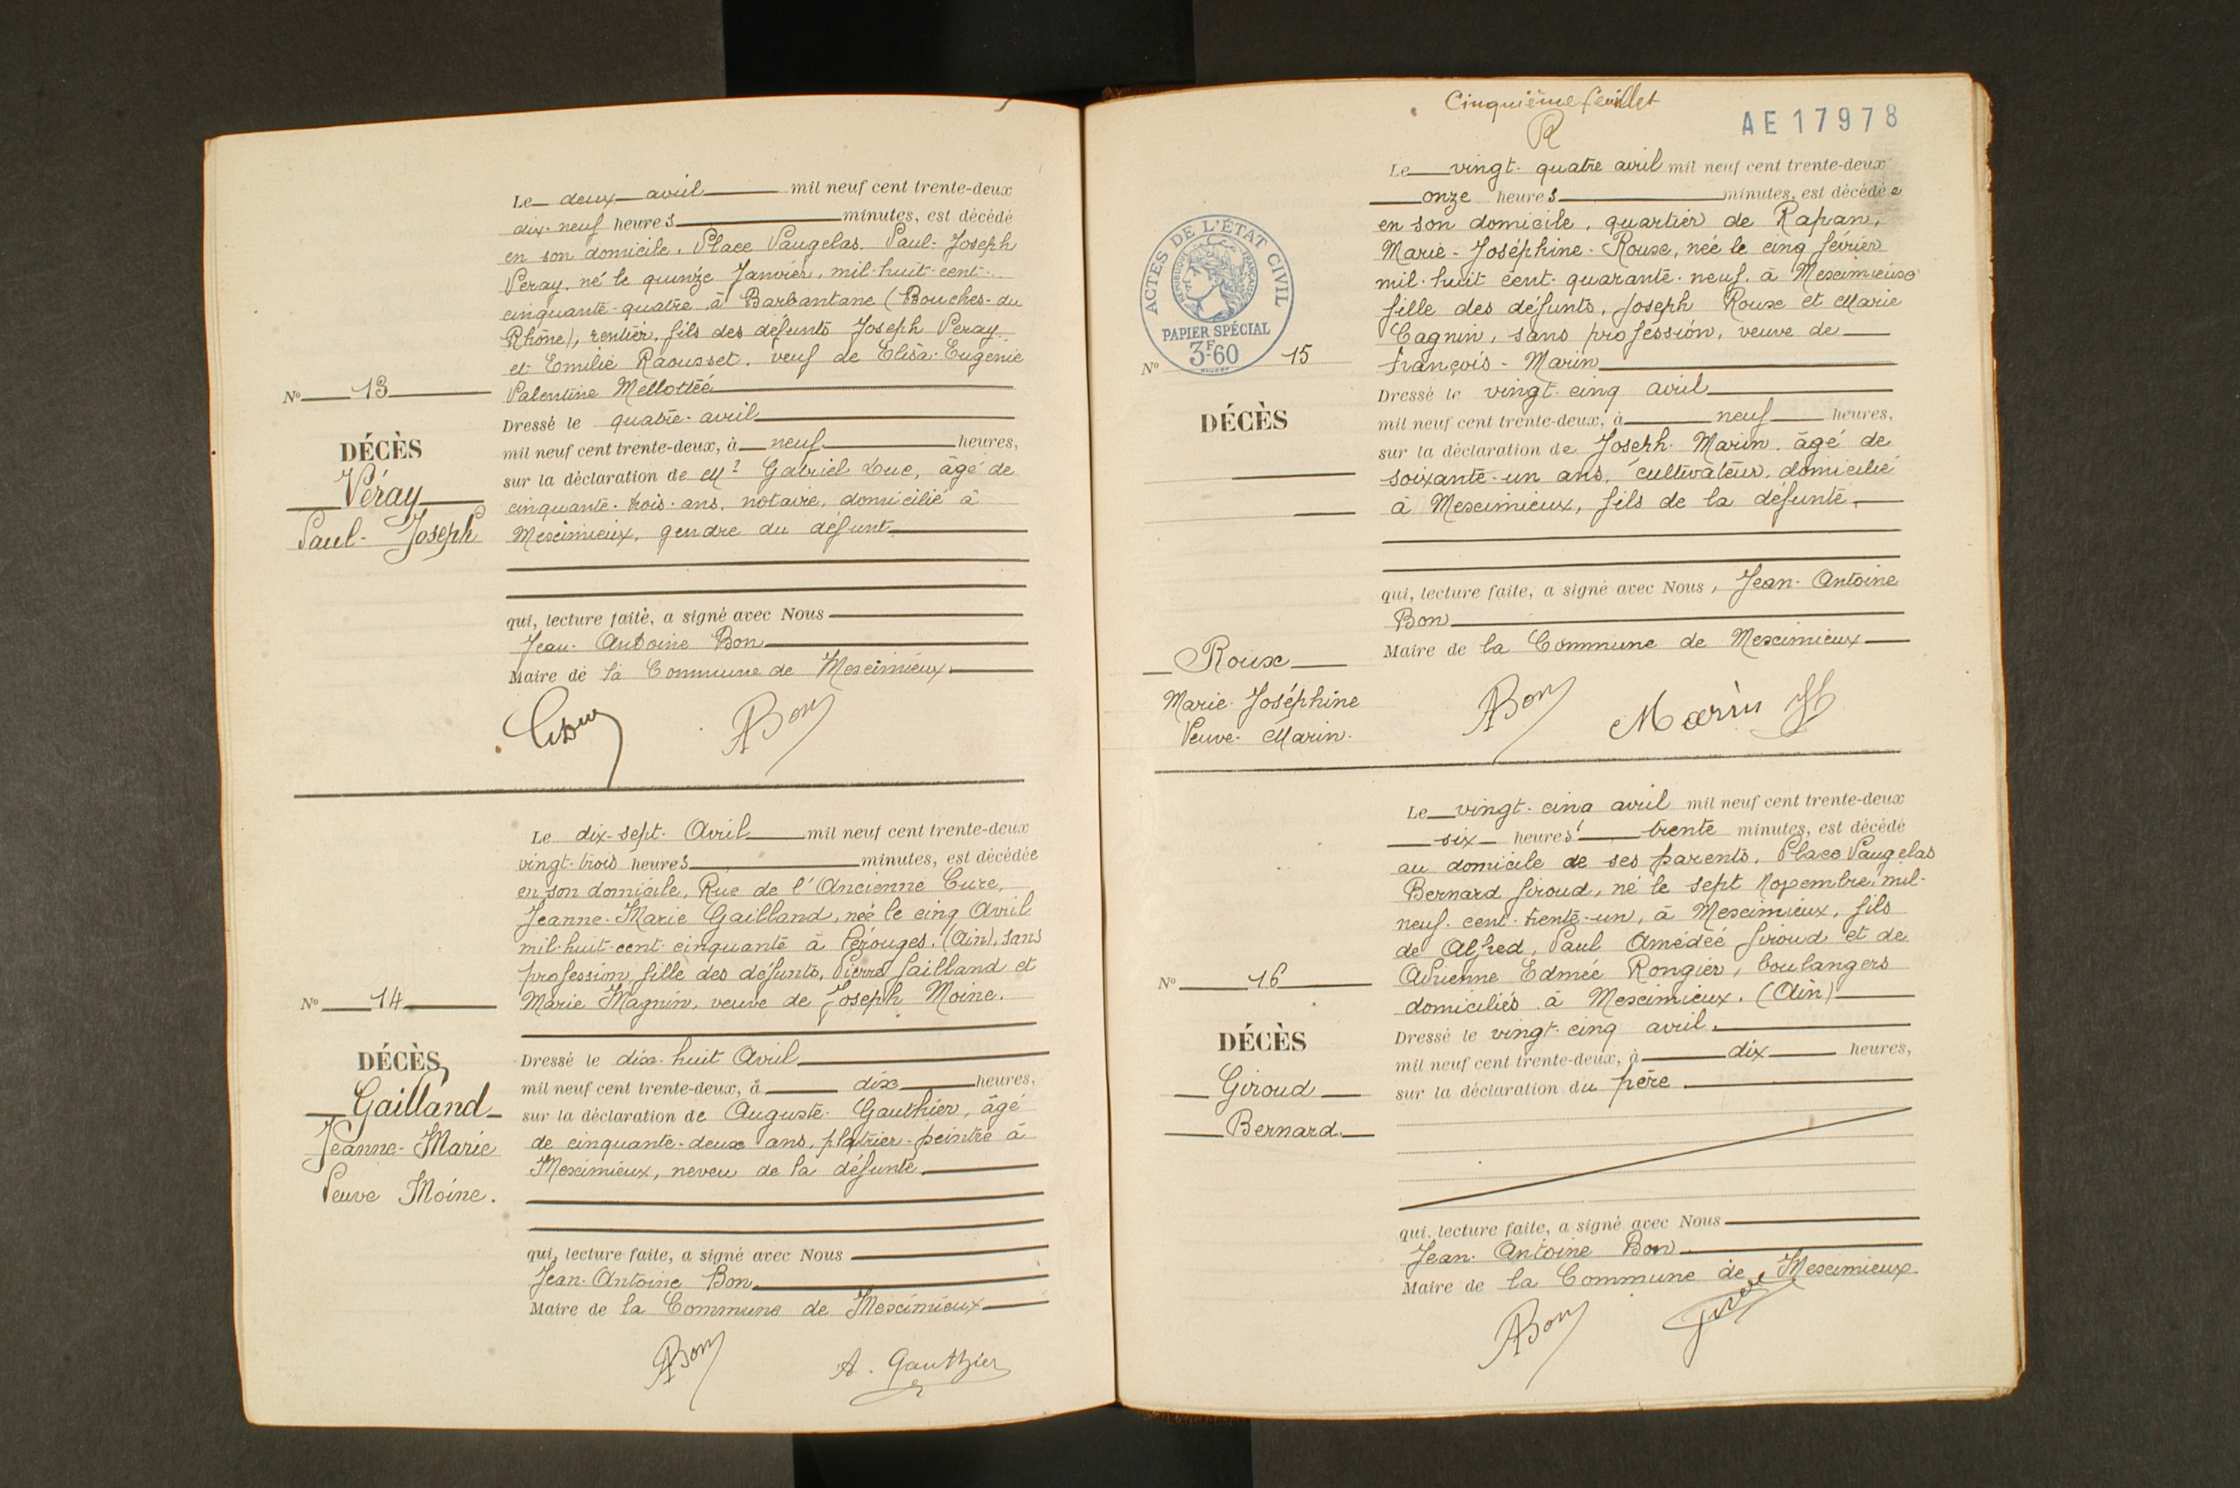 Le deux avril mil neuf cent trente-deux
dix-neuf heures minutes, est décédé
en son domicile, Place Vaugelas. Paul-Joseph
Veray, né le quinze Janvier, mil-huit-cent-
cinquante-quatre, à Barbantane (Bouches-du
Rhône), rentier, fils des défunts Joseph Veray
et Emilie Raousset, veuf de Elisa-Eugénie
Valentine Mellottéé
Nº 13
DÉCÈS
Véray
Paul-Joseph
Dressé le quatre-avril
mil neuf cent trente-deux, à neuf heures,
sur la déclaration de Mᵉ Gabriel Duc, âgé de
cinquante-trois-ans, notaire, domicilié à
Meximieux, gendre du défunt
qui, lecture faite, a signé avec Nous
Jean-Antoine Bon
Maire de la Commune de Meximieux
ABon
Le dix-sept-Avril mil neuf cent trente-deux
vingt-trois heures minutes, est décédée
en son domicile, Rue de l'Ancienne Cure,
Jeanne-Marie Gailland, née le cinq Avril
mil-huit-cent-cinquante à Pérouges, (Ain), sans
profession, fille des défunts, Pierre Gailland et
Marie Magnin, veuve de Joseph Moine.
Nº 14
DÉCÈS
Gailland
Jeanne-Marie
Veuve Moine.
Dressé le dix-huit Avril
mil neuf cent trente-deux, à dix heures,
sur la déclaration de Auguste Gauthier, âgé
de cinquante-deux ans, platrier-peintre à
Meximieux, neveu de la défunte
qui, lecture faite, a signé avec Nous
Jean-Antoine Bon
Maire de la Commune de Meximieux
ABon A. Gauthier
Cinquième feuillet
R
AE 17978
ACTES DE L'ÉTAT CIVIL
RÉPUBLIQUE FRANÇAISE
PAPIER SPÉCIAL
3F60
Le vingt-quatre avril mil neuf cent trente-deux
onze heures minutes, est décédée
en son domicile, quartier de Rapan,
Marie-Joséphine-Roux, née le cinq février
mil-huit cent-quarante-neuf, à Meximieux
fille des défunts, Joseph Roux et Marie
Cagnin, sans profession, veuve de
françois-Marin
Nº 15
DÉCÈS
Roux
Marie-Joséphine
Veuve-Marin.
Dressé le vingt-cinq avril
mil neuf cent trente-deux, à neuf heures,
sur la déclaration de Joseph-Marin, âgé de
soixante-un ans, cultivateur, domicilié
à Meximieux, fils de la défunte
qui, lecture faite, a signé avec Nous, Jean-Antoine
Bon
Maire de la Commune de Meximieux
ABon Marin
Le vingt-cinq avril mil neuf cent trente-deux
six heures trente minutes, est décédé
au domicile de ses parents, Place Vaugelas
Bernard Giroud, né le sept Novembre, mil-
neuf-cent-trente-un, à Meximieux, fils
de Alfred, Paul Amédéé Giroud et de
Adrienne Edmée Rongier, boulangers
domiciliés à Meximieux. (Ain)
Nº 16
DÉCÈS
Giroud
Bernard
Dressé le vingt-cinq avril
mil neuf cent trente-deux, à dix heures,
sur la déclaration du père
qui, lecture faite, a signé avec Nous
Jean-Antoine Bon
Maire de la Commune de Meximieux
ABon